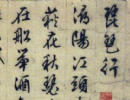 琵琶行
潯陽江頭
荻花秋瑟
在船舉酒